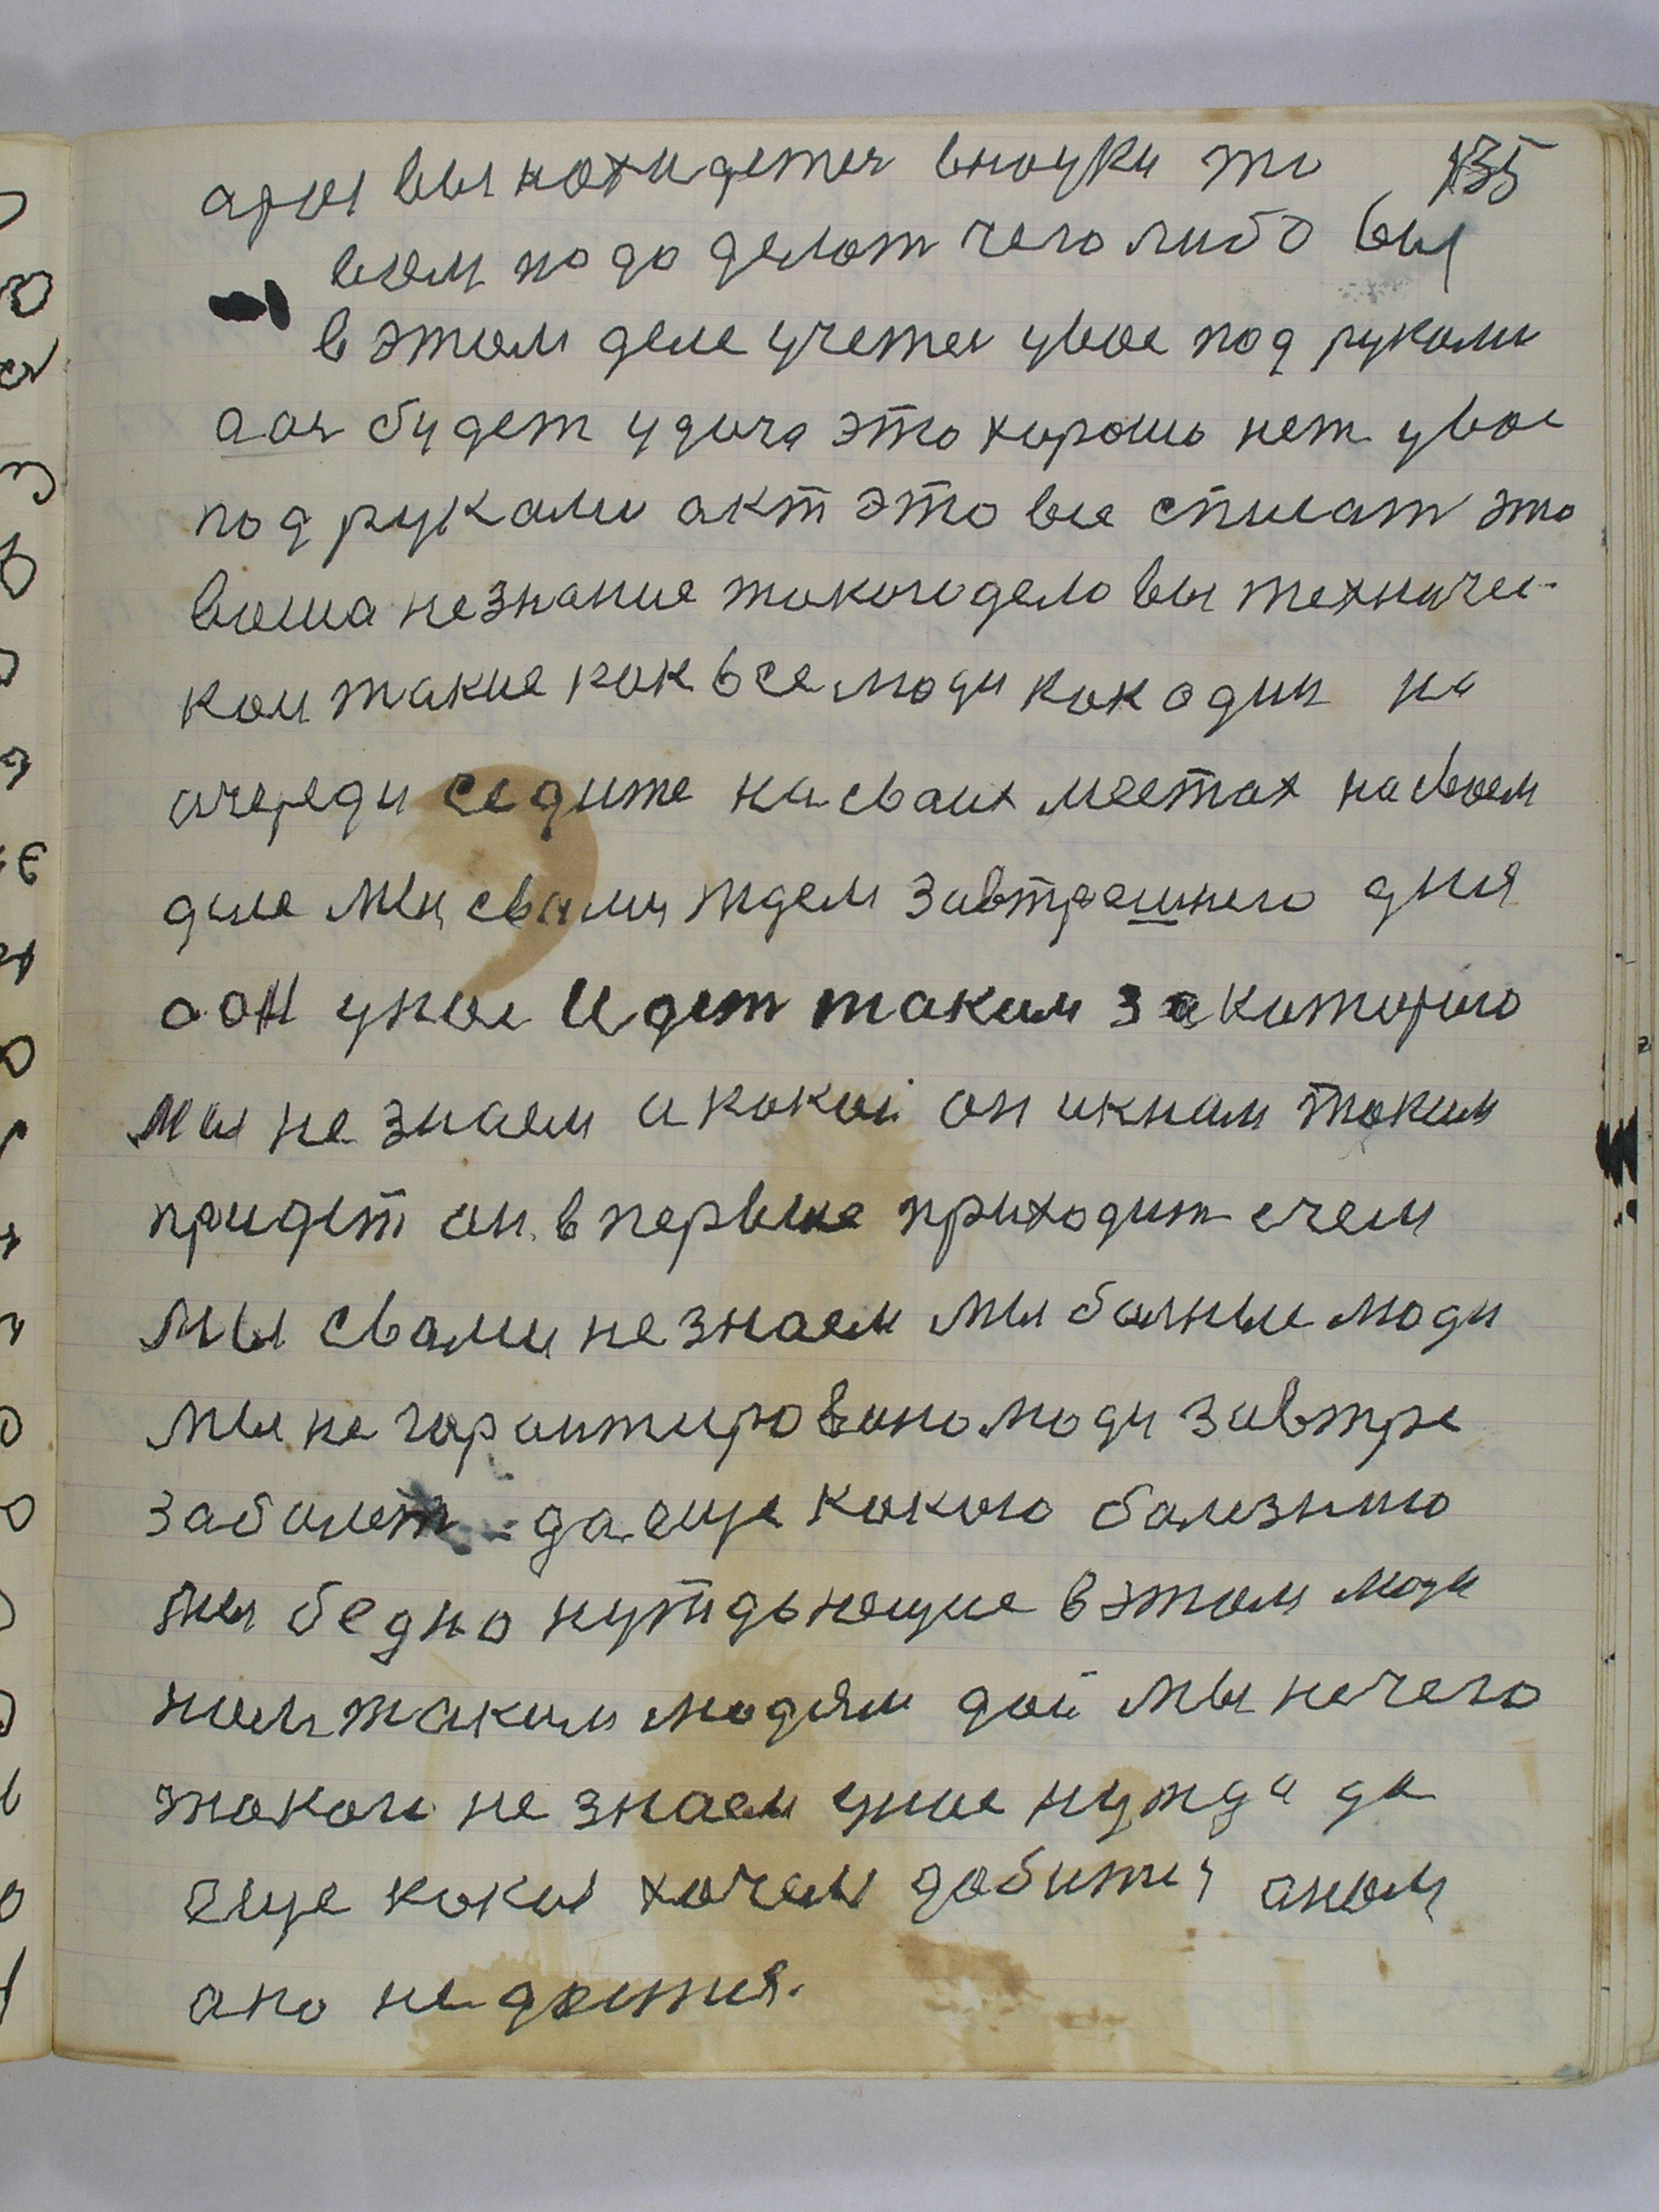 аразвы находитеся внауки то 135
вам надо делат чего либо вы
в этом деле учетеся увас под руками
аая будет удача это хорошо нет увас
под руками акт это все спишат это
ваша незнание такого дело вы техничес-
кои такие как все люди как один на
очереди седите на сваих местах на своем
деле мы свами ждем завтрешнего дня
а он унас идет таким за которого
мы не знаем и какой он икнам таким
придет он впервые приходит счем
мы свами незнаем мы балные люди
мы не гарантировано люди завтре
заболет да еще какого балезнию
мы бедно нуждьнещие вэтом люди
нам таким людям дай мы нечего
такого не знаем унас нужда да
еще какы хочем добится анам
ано не дается.